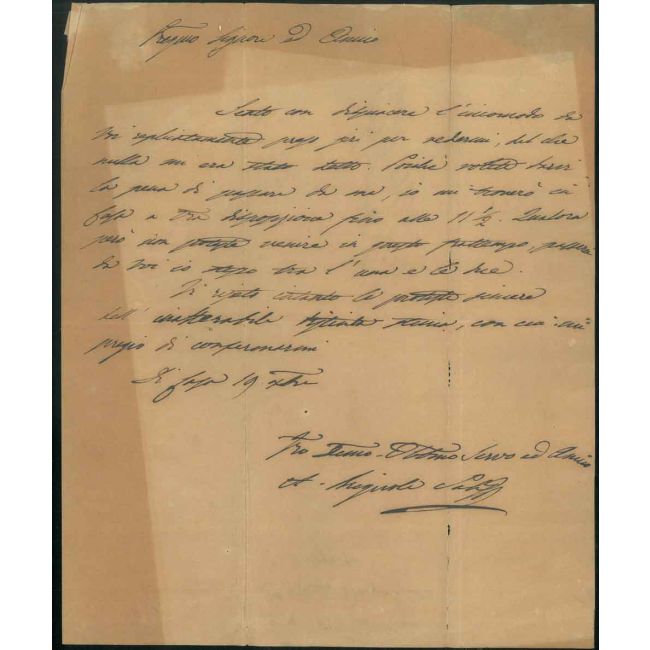 Pregmo Signore ed Amico
Sento con dispiacere l'incomodo da
Voi replicatamente preso jeri per vedermi, del che
nulla mi era stato detto. Poichè volete darvi
la pena di passare da me, io mi troverò in
casa a Vra disposizione fino alle 11 1/2. Qualora
però non poteste venire in questo frattempo, passerò
da Voi io stesso tra l'una e le due.
Vi ripeto intanto le proteste sincere
dell'inalterabile distinta stima, con cui mi
pregio di confermarmi
Di casa 19 Xbre
Vro Devmo Obbmo Servo ed Amico
A.